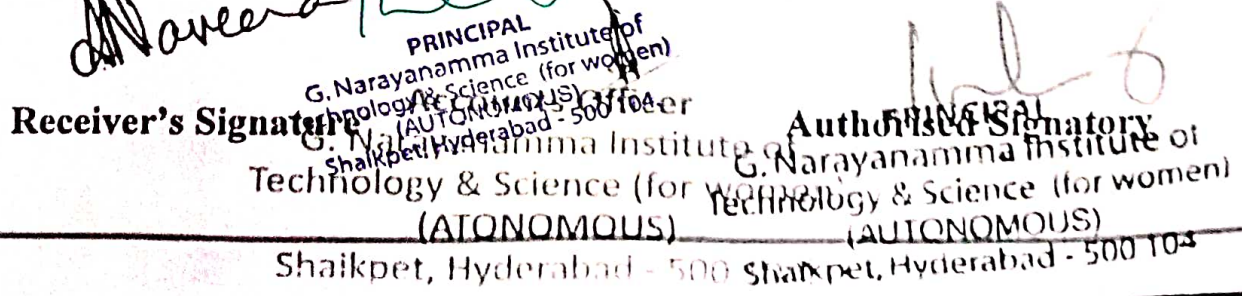 Naveena
PRINCIPAL
G. Narayanamma Institute of
Technology & Science (for women)
(AUTONOMOUS)
Shaikpet, Hyderabad - 500 104.
Receiver's Signature
Accounts Officer
G. Narayanamma Institute of
Technology & Science (for women)
(ATONOMOUS)
Shaikpet, Hyderabad - 500
Authorised Signatory
PRINCIPAL
G. Narayanamma Institute of
Technology & Science (for women)
(AUTONOMOUS)
Shaikpet, Hyderabad - 500 104